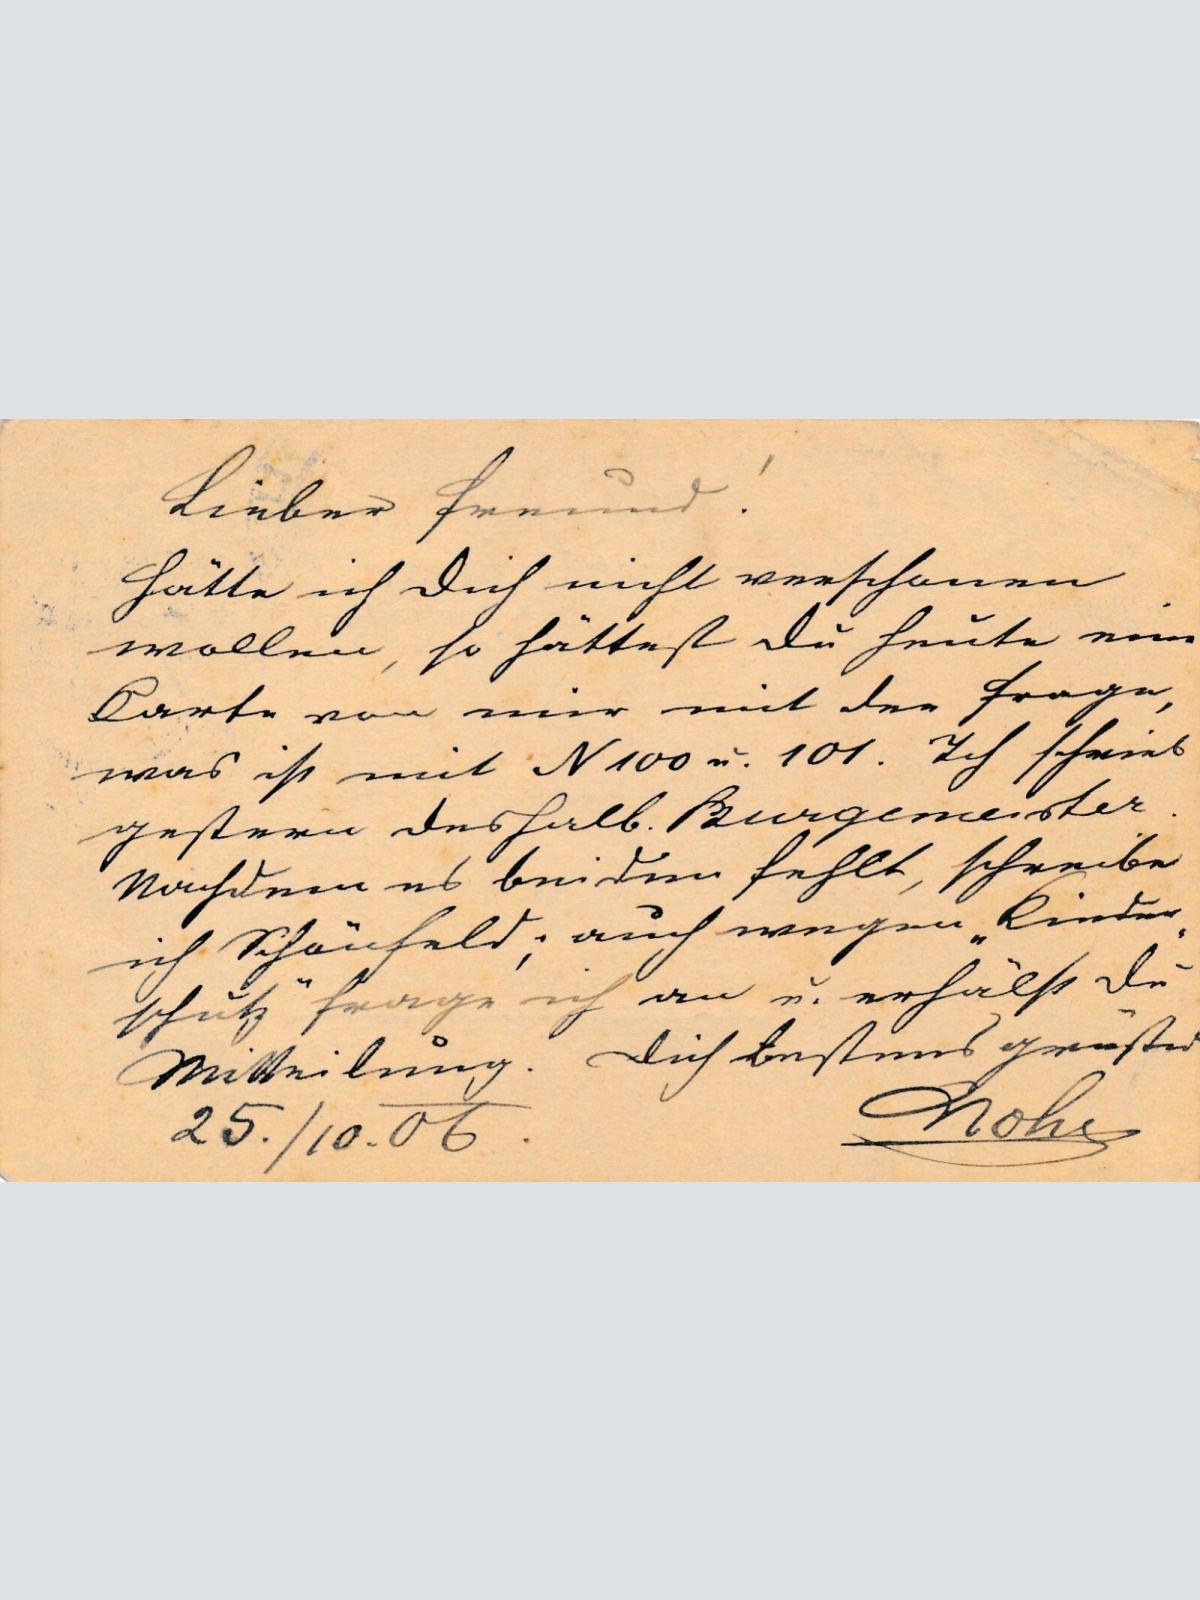 Lieber Freund!
Hätte ich Dich nicht verschonen
wollen, so hättest Du heute eine
Karte von mir mit der Frage,
was ist mit N 100 u. 101. Ich schrieb
gestern deshalb. Burgemeister.
Nachdem es beiden fehlt, schreibe
ich Schönfeld; auch wegen „Kinder„
schutz" frage ich an u. erhälst Du
Mitteilung. Dich bestens grüßend
25./10. 06. Nohe